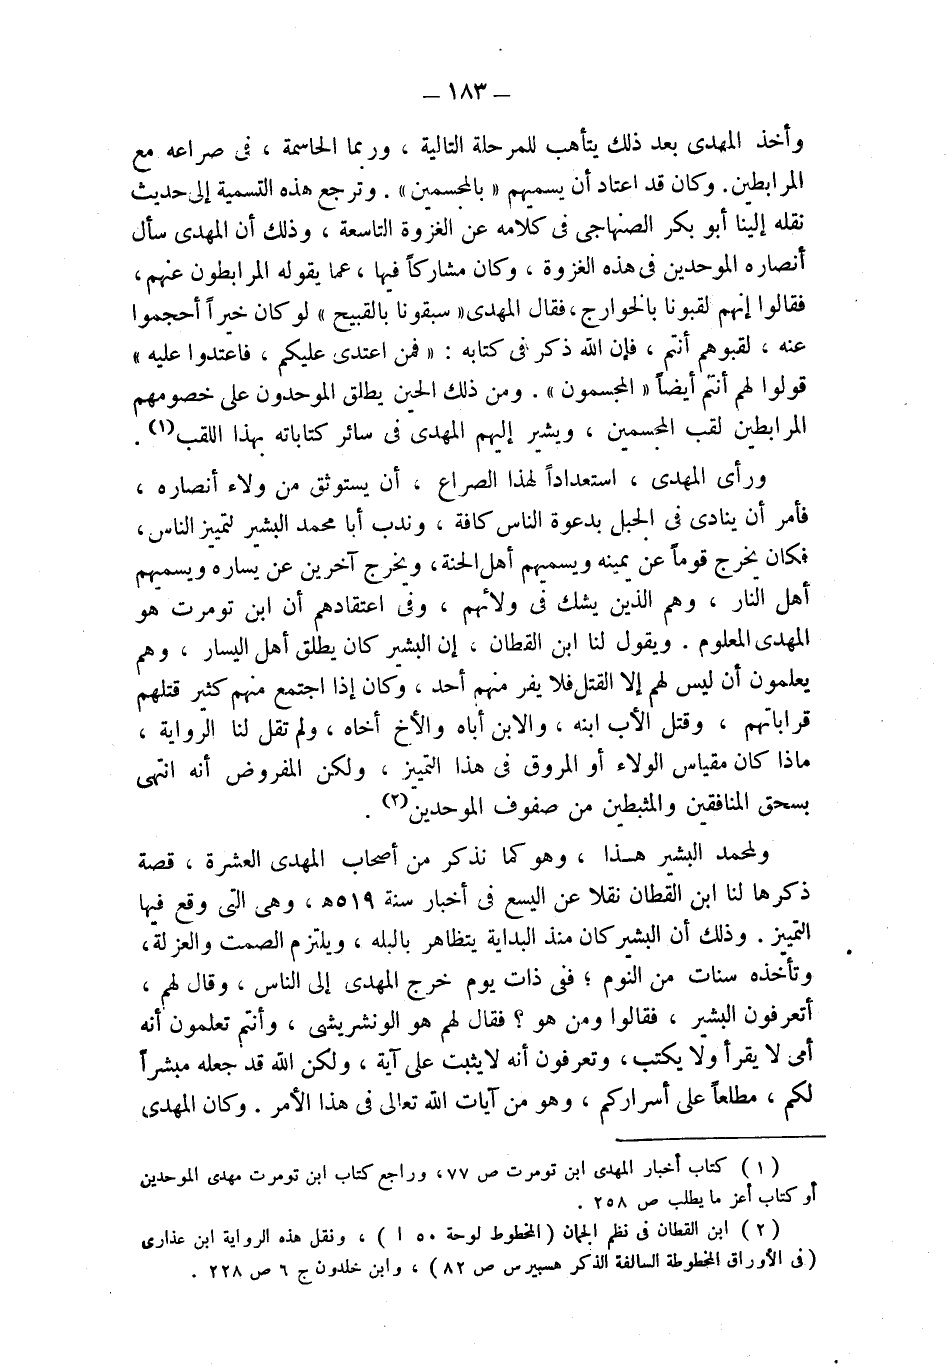 — ١٨٣ —
وأخذ المهدى بعد ذلك يتأهب للمرحلة التالية ، وربما الحاسمة ، فى صراعه مع
المرابطين. وكان قد اعتاد أن يسميهم « بالمجسمين » . وترجع هذه التسمية إلى حديث
نقله إلينا أبو بكر الصنهاجى فى كلامه عن الغزوة التاسعة ، وذلك أن المهدى سأل
أنصاره الموحدين فى هذه الغزوة ، وكان مشاركاً فيها ، عما يقوله المرابطون عنهم ،
فقالوا إنهم لقبونا بالخوارج ، فقال المهدى « سبقونا بالقبيح » لو كان خيراً أحجموا
عنه ، لقبوهم أنتم ، فإن الله ذكر فى كتابه : « فمن اعتدى عليكم ، فاعتدوا عليه »
قولوا لهم أنتم أيضاً « المجسمون » . ومن ذلك الحين يطلق الموحدون على خصومهم
المرابطين لقب المجسمين ، ويشير إليهم المهدى فى سائر كتاباته بهذا اللقب(١) .
ورأى المهدى ، استعداداً لهذا الصراع ، أن يستوثق من ولاء أنصاره ،
فأمر أن ينادى فى الجبل بدعوة الناس كافة ، وندب أبا محمد البشير لتمييز الناس ،
فكان يخرج قوماً عن يمينه ويسميهم أهل الجنة ، ويخرج آخرين عن يساره ويسميهم
أهل النار ، وهم الذين يشك فى ولائهم ، وفى اعتقادهم أن ابن تومرت هو
المهدى المعلوم . ويقول لنا ابن القطان ، إن البشير كان يطلق أهل اليسار ، وهم
يعلمون أن ليس لهم إلا القتل فلا يفر منهم أحد ، وكان إذا اجتمع منهم كثير قتلهم
قراباتهم ، وقتل الأب ابنه ، والابن أباه والأخ أخاه ، ولم تقل لنا الرواية ،
ماذا كان مقياس الولاء أو المروق فى هذا التمييز ، ولكن المفروض أنه انتهى
بسحق المنافقين والمثبطين من صفوف الموحدين(٢) .
ولمحمد البشير هــذا ، وهو كما نذكر من أصحاب المهدى العشرة ، قصة
ذكرها لنا ابن القطان نقلا عن اليسع فى أخبار سنة ٥١٩هـ ، وهى التى وقع فيها
التمييز . وذلك أن البشير كان منذ البداية يتظاهر بالبله ، ويلتزم الصمت والعزلة ،
وتأخذه سنات من النوم ؛ ففى ذات يوم خرج المهدى إلى الناس ، وقال لهم ،
أتعرفون البشير ، فقالوا ومن هو ؟ فقال لهم هو الونشريشى ، وأنتم تعلمون أنه
أمى لا يقرأ ولا يكتب ، وتعرفون أنه لايثبت على آية ، ولكن الله قد جعله مبشراً
لكم ، مطلعاً على أسراركم ، وهو من آيات الله تعالى فى هذا الأمر . وكان المهدى
(١) كتاب أخبار المهدى ابن تومرت ص ٧٧، وراجع كتاب ابن تومرت مهدى الموحدين
أو كتاب أعز ما يطلب ص ٢٥٨ .
(٢) ابن القطان فى نظم الجمان (المخطوط لوحة ٥٠ ا) ، ونقل هذه الرواية ابن عذارى
(فى الأوراق المخطوطة السالفة الذكر هسبيرس ص ٨٢) ، وابن خلدون ج ٦ ص ٢٢٨ .